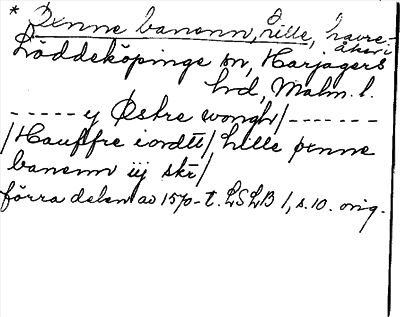 * Penne banenn, Lille, havre-
åker i
Löddeköpinge sn, Harjagers
hd, Malm. l.
----- y Østre wongh/ -------
/Hauffre iordtt/ Lille penne
banenn iij skr/
förra delen av 1570-t. LSLB 1, s. 10. orig.